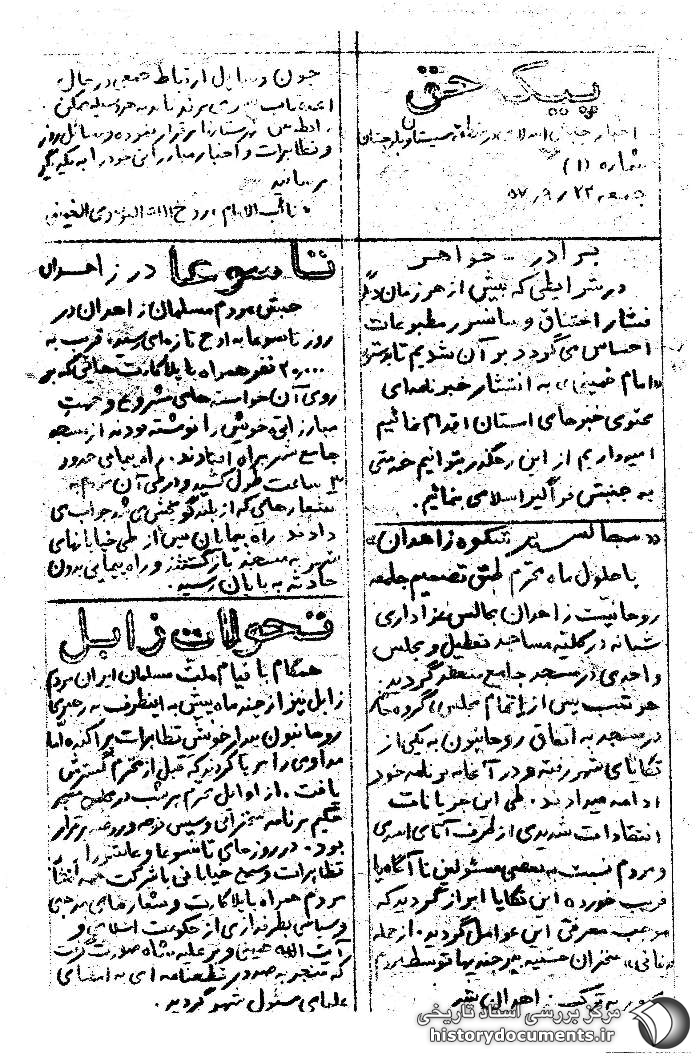 پیک حق
اخبار جنبش اسلامی در زاهدان سیستان و بلوچستان
شماره (۱)
جمعه ۲۴ / ۹ / ۵۷
برادر - خواهر
در شرایطی که بیش از هر زمان دیگر
فشار اختناق و سانسور مطبوعات
احساس می‌گردد بر آن شدیم تا بدستور
«امام خمینی» به انتشار خبرنامه‌ای
محتوی خبرهای استان اقدام نمائیم
امیدواریم از این رهگذر بتوانیم خدمتی
به جنبش فراگیر اسلامی بنمائیم.
«مجالس پر شکوه زاهدان»
با حلول ماه محرم طبق تصمیم جامعه
روحانیت زاهدان مجالس عزاداری
شبانه در کلیه مساجد تعطیل و مجلس
واحدی در مسجد جامع منعقد گردید
هر شب پس از اتمام مجلس گروه حاضر
در مسجد به اتفاق روحانیون به یکی از
تکایای شهر رفته و در آنجا به برنامه خود
ادامه میدادند. طی این جریانات
انتقادات شدیدی از طرف آقای اسدی
و مردم نسبت به بعضی مسئولین ناآگاه یا
فریب خورده این تکایا ابراز گردید که
موجب معرفی این عوامل گردید. از جمله
سخنران حسینیه بیرجندیها توسط مردم
به ترک زاهدان شد
چون وسایل ارتباط جمعی در حال
اعتصاب بسر می‌برند باید به هر وسیله ممکن
رابطه بین شهرستانها برقرار نموده و مسائل روز
و تظاهرات و اخبار مبارزاتی خود را به یکدیگر
برسانید
نائب الامام روح الله الموسوی الخمینی
تاسوعا در زاهدان
جنبش مردم مسلمان زاهدان در
روز تاسوعا به اوج تازه‌ای رسید، قریب به
۲۰٫۰۰۰ نفر همراه با پلاکارت هایی که بر
روی آن خواسته های مشروع و جهت
مبارزاتی خویش را نوشته بودند از مسجد
جامع شهر براه افتادند. راه پیمایی حدود
۳ ساعت طول کشید و در طی آن مردم به
شعارهای که از بلندگو پخش می شد جواب می
دادند راه پیمایان پس از طی خیابانهای
شهر به مسجد بازگشتند و راه پیمایی بدون
حادثه به پایان رسید.
تحولات زابل
همگام با قیام ملت مسلمان ایران مردم
زابل نیز از چند ماه پیش به اینطرف به رهبری
روحانیون بیدار خویش تظاهرات پراکنده اما
مداومی را برپا کردند که قبل از محرم گسترش
یافت. از اوایل محرم هر شب در مجلس
حکیم برنامه سخنرانی و سپس نوحه و روضه برقرار
بود. در روزهای تاسوعا و عاشورا
تظاهرات وسیع خیابانی با شرکت
مردم همراه با پلاکارت و شعارهای مذهبی
و سیاسی بطرفداری از حکومت اسلامی و
آیت الله خمینی و بر علیه شاه صورت گرفت
که منجر به صدور قطعنامه ای به امضای
علمای مسئول شهر گردید.
مرکز بررسی اسناد تاریخی
historydocuments.ir